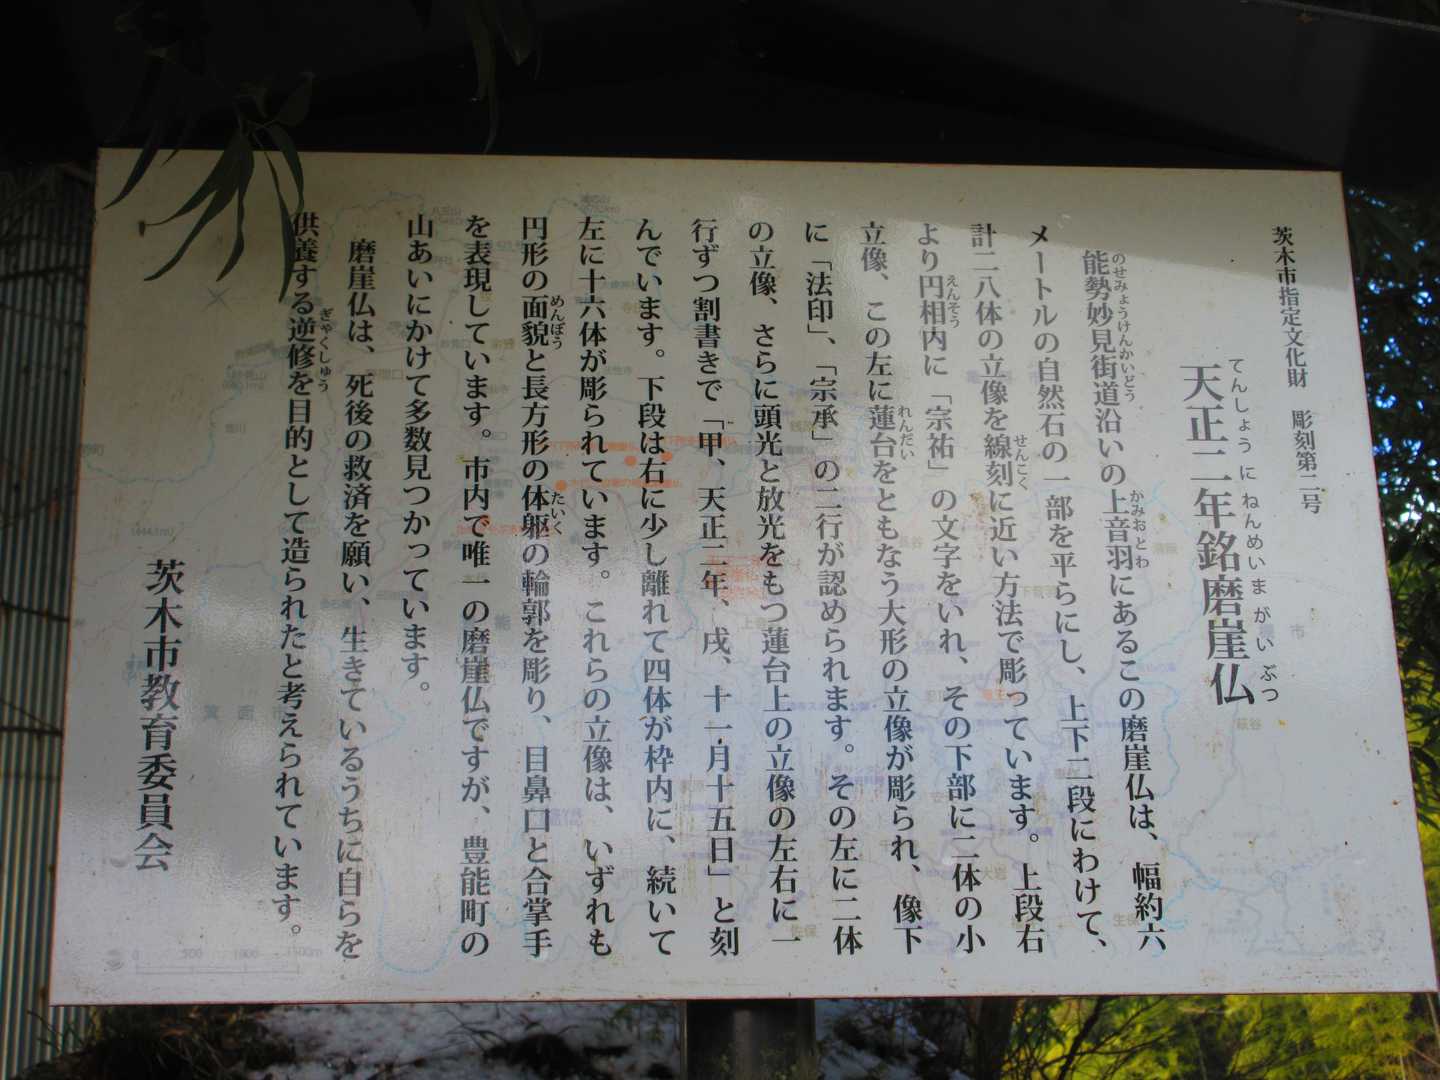 茨木市指定文化財　彫刻第二号
てんしょう に ねんめいまがいぶつ
天正二年銘磨崖仏
のせみょうけんかいどう　かみおとわ
能勢妙見街道沿いの上音羽にあるこの磨崖仏は、幅約六
メートルの自然石の一部を平らにし、上下二段にわけて、
せんこく
計二八体の立像を線刻に近い方法で彫っています。上段右
えんそう
より円相内に「宗祐」の文字をいれ、その下部に二体の小
れんだい
立像、この左に蓮台をともなう大形の立像が彫られ、像下
に「法印」、「宗承」の二行が認められます。その左に二体
の立像、さらに頭光と放光をもつ蓮台上の立像の左右に一
行ずつ割書きで「甲、天正二年、戌、十一月十五日」と刻
んでいます。下段は右に少し離れて四体が枠内に、続いて
左に十六体が彫られています。これらの立像は、いずれも
めんぼう　たいく
円形の面貌と長方形の体躯の輪郭を彫り、目鼻口と合掌手
を表現しています。市内で唯一の磨崖仏ですが、豊能町の
山あいにかけて多数見つかっています。
磨崖仏は、死後の救済を願い、生きているうちに自らを
ぎゃくしゅう
供養する逆修を目的として造られたと考えられています。
茨木市教育委員会